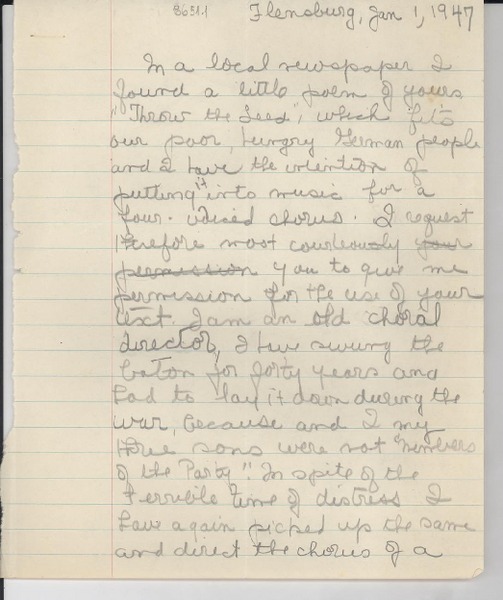 8651.1 Flensburg, Jan 1, 1947
In a local newspaper I
found a little poem of yours
"Throw the Seed", which fits
our poor, hungry German people
and I have the intention of
putting it into music for a
four-voiced chorus. I request
therefore most courteously your
permission you to give me
permission for the use of your
text. I am an old choral
director, I have swung the
baton for forty years and
had to lay it down during the
war, because and I my
three sons were not "members
of the Party". In spite of the
terrible time of distress I
have again picked up the same
and direct the chorus of a